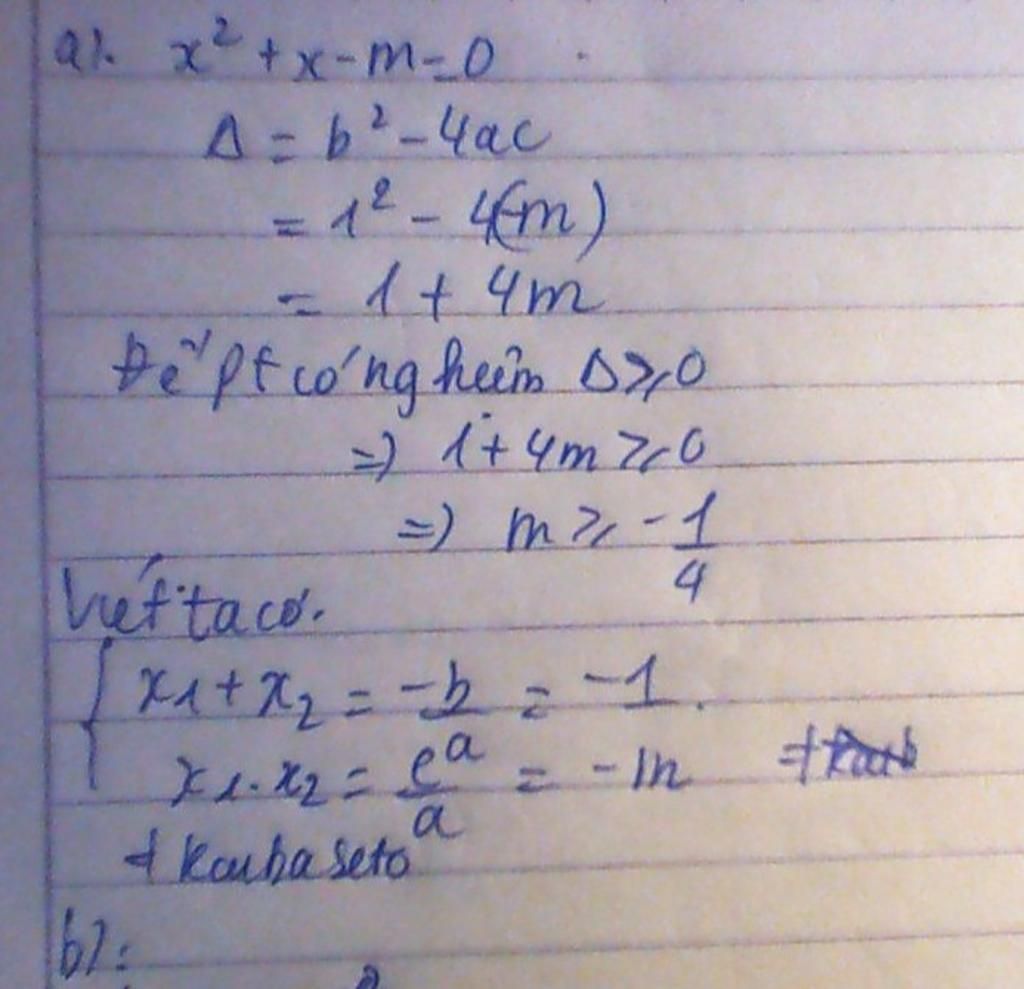 a). x² + x - m = 0
Δ = b² - 4ac
= 1² - 4(-m)
= 1 + 4m
Để pt có nghiệm Δ ≥ 0
=> 1 + 4m ≥ 0
=> m ≥ -1/4
Viét ta có.
{ x1 + x2 = -b/a = -1.
x1 . x2 = c/a = -m
+ Kaubaseto
b):